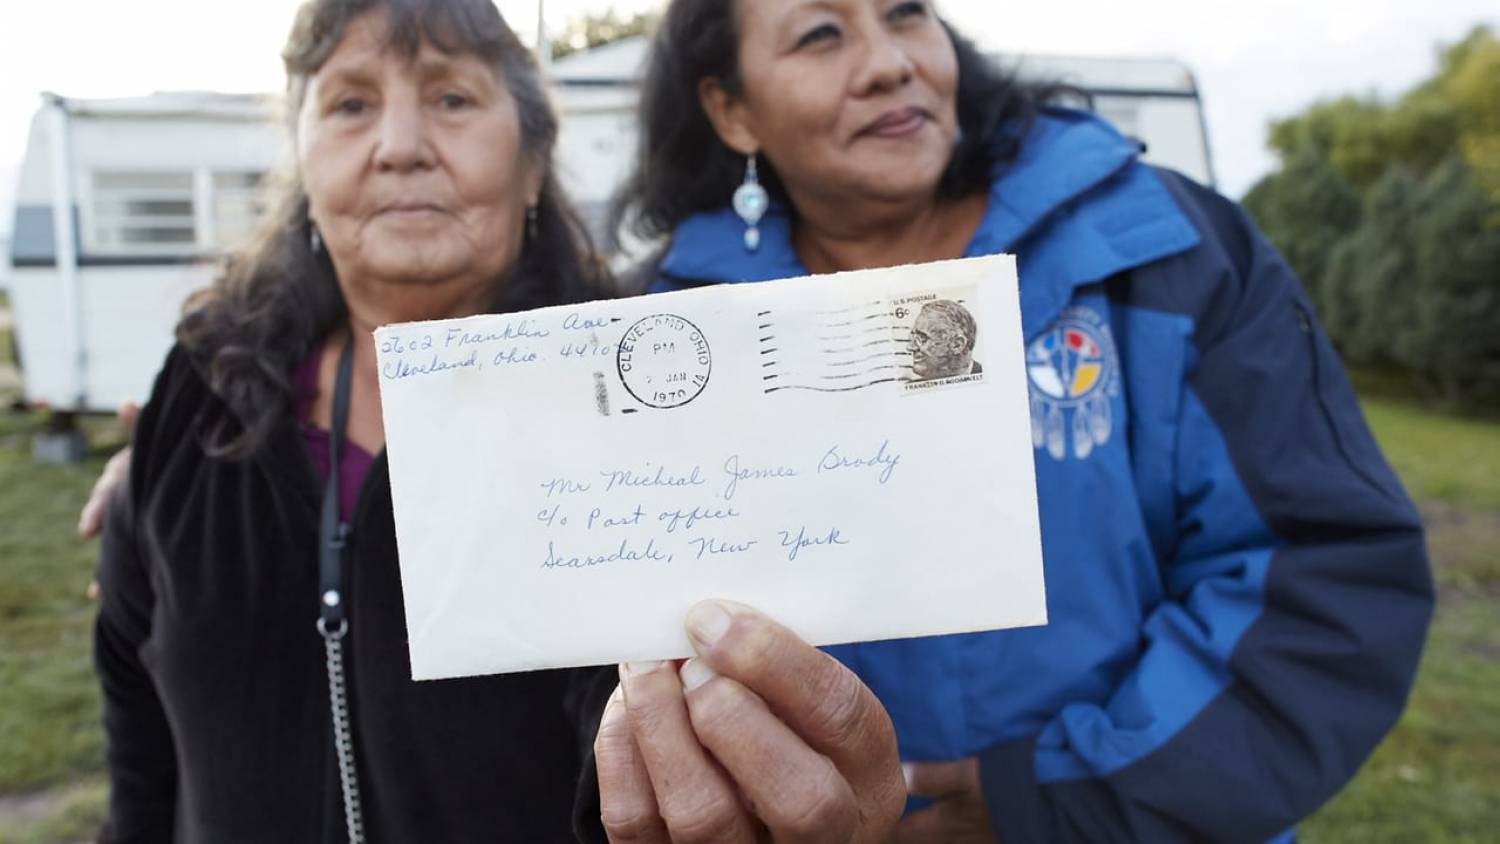 2602 Franklin Ave
Cleveland, Ohio. 44107
CLEVELAND OHIO
PM
JAN
1970
U.S. POSTAGE
6c
FRANKLIN D. ROOSEVELT
Mr Micheal James Brody
c/o Post office
Scarsdale, New York